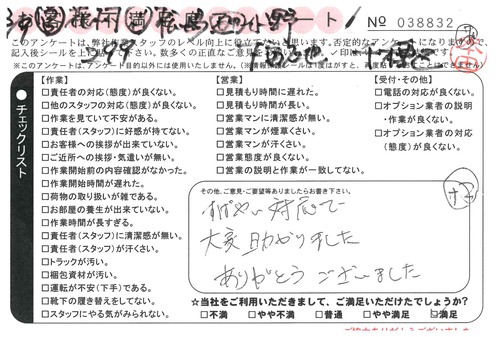 ート
№ 038832
このアンケートは、弊社作業スタッフのレベル向上に役立てたいと思います。否定的なアンケートになりますので、
記入後シールを上に貼って下さい。数多くの率直な正直な声をお待ちしております。✓印は
※このアンケートは、アンケート目的以外には使用いたしません。(
【作業】
□責任者の対応(態度)が良くない。
□他のスタッフの対応(態度)が良くない。
□作業を見ていて不安がある。
□責任者(スタッフ)に好感が持てない。
□お客様への挨拶が出来ていない。
□ご近所への挨拶・気遣いが無い。
□作業開始前の内容確認がなかった。
□作業開始時間が遅れた。
□荷物の取り扱いが雑である。
□お部屋の養生が出来ていない。
□作業時間が長すぎる。
□責任者(スタッフ)に清潔感が無い。
□責任者(スタッフ)が汗くさい。
□トラックが汚い。
□梱包資材が汚い。
□運転が不安(下手)である。
□靴下の履き替えをしてない。
□スタッフにやる気がみられない。
チェックリスト
【営業】
□見積もり時間に遅れた。
□見積もり時間が長い。
□営業マンに清潔感が無い。
□営業マンが煙草くさい。
□営業マンが汗くさい。
□営業態度が良くない。
□営業の説明と作業が一致してない。
【受付・その他】
□電話の対応が良くない。
□オプション業者の説明
・作業が良くない。
□オプション業者の対応
(態度)が良くない。
その他、ご意見・ご要望等ありましたらお書き下さい。
すばやい対応で
大変助かりました
ありがとうございました
☆当社をご利用いただきまして、ご満足いただけたでしょうか?
□不満 □やや不満 □普通 □やや満足 ☑満足